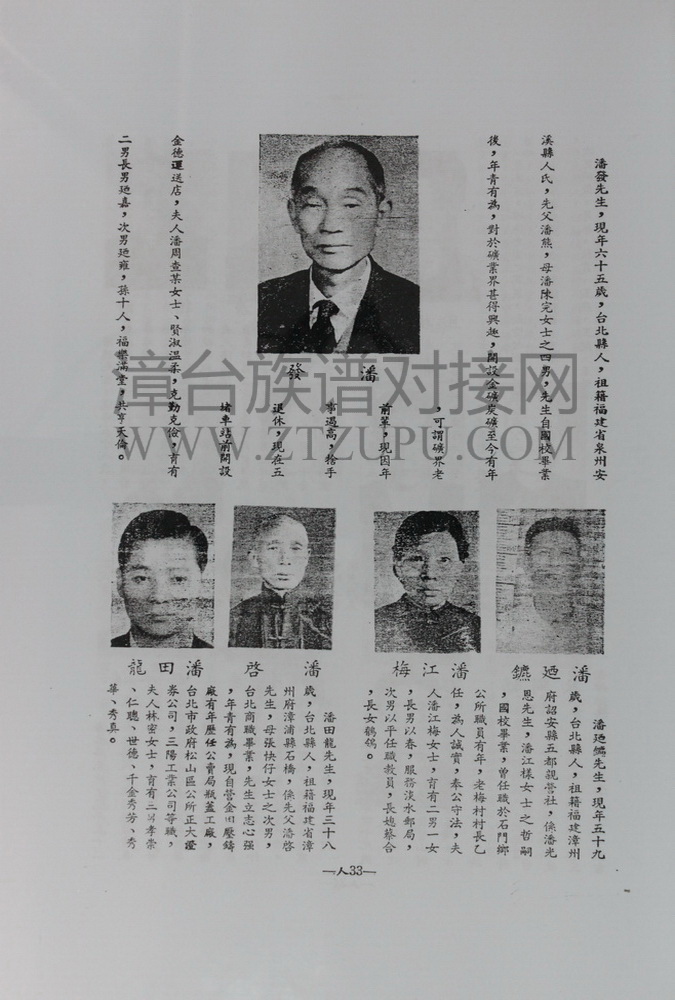 潘發先生，現年六十五歲，台北縣人，祖籍福建省泉州安
溪縣人氏，先父潘熊，母潘陳完女士之四男，先生自國校畢業
後，年青有為，對於礦業界甚得興趣，開設金礦炭礦至今有年
，可謂礦界老
前輩，現因年
事過高，捨手
退休，現在五
堵車站前開設
金德運送店，夫人潘周查某女士、賢淑温柔，克勤克儉，育有
二男長男廼嘉，次男廼雍，孫十人，福樂滿堂，共享天倫。
潘發
章台族谱对接网
WWW.ZTZUPU.COM
潘廼鑣
潘江梅
潘啓
潘田龍
潘廼鑣先生，現年五十九
歲，台北縣人，祖籍福建漳州
府詔安縣五都親營社，係潘光
恩先生，潘江樣女士之哲嗣
，國校畢業，曾任職於石門鄉
公所職員有年，老梅村村長乙
任，為人誠實，奉公守法，夫
人潘江梅女士，育有二男一女
，長男以春，服務淡水郵局，
次男以平任職教員，長媳蔡合
，長女鶴鶴。
潘田龍先生，現年三十八
歲，台北縣人，祖籍福建省漳
州府漳浦縣石橋，係先父潘啓
先生，母張快仔女士之次男，
台北商職畢業，先生立志心强
，年青有為，現自營金田壓鑄
廠有年歷任公賣局瓶蓋工廠，
台北市政府松山區公所正大證
券公司，三陽工業公司等職，
夫人林密女士，育有二男孝崇
、仁聰、世德、千金秀芳、秀
華、秀真。
—人33—